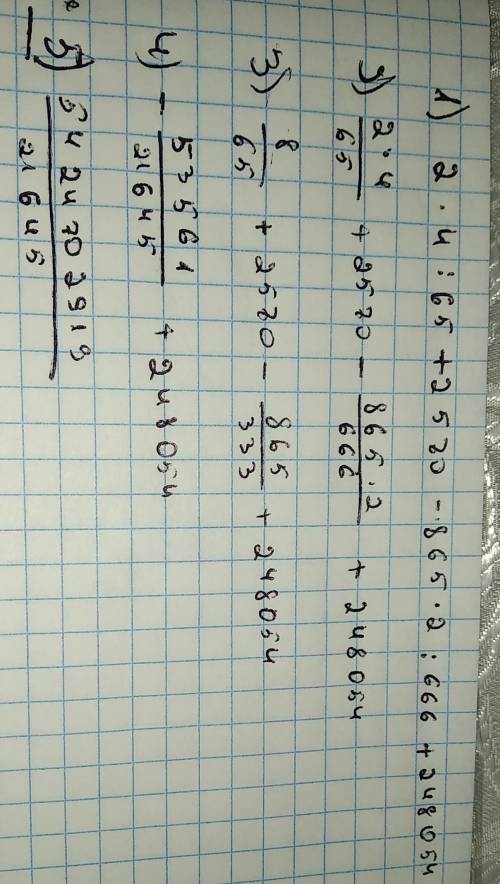 1) 2·4:65+2570-865·2:666+248054
2) 2·4/65 + 2570 - 865·2/666 + 248054
3) 8/65 + 2570 - 865/333 + 248054
4) - 53561/21645 + 248054
5) 5424702919/21645